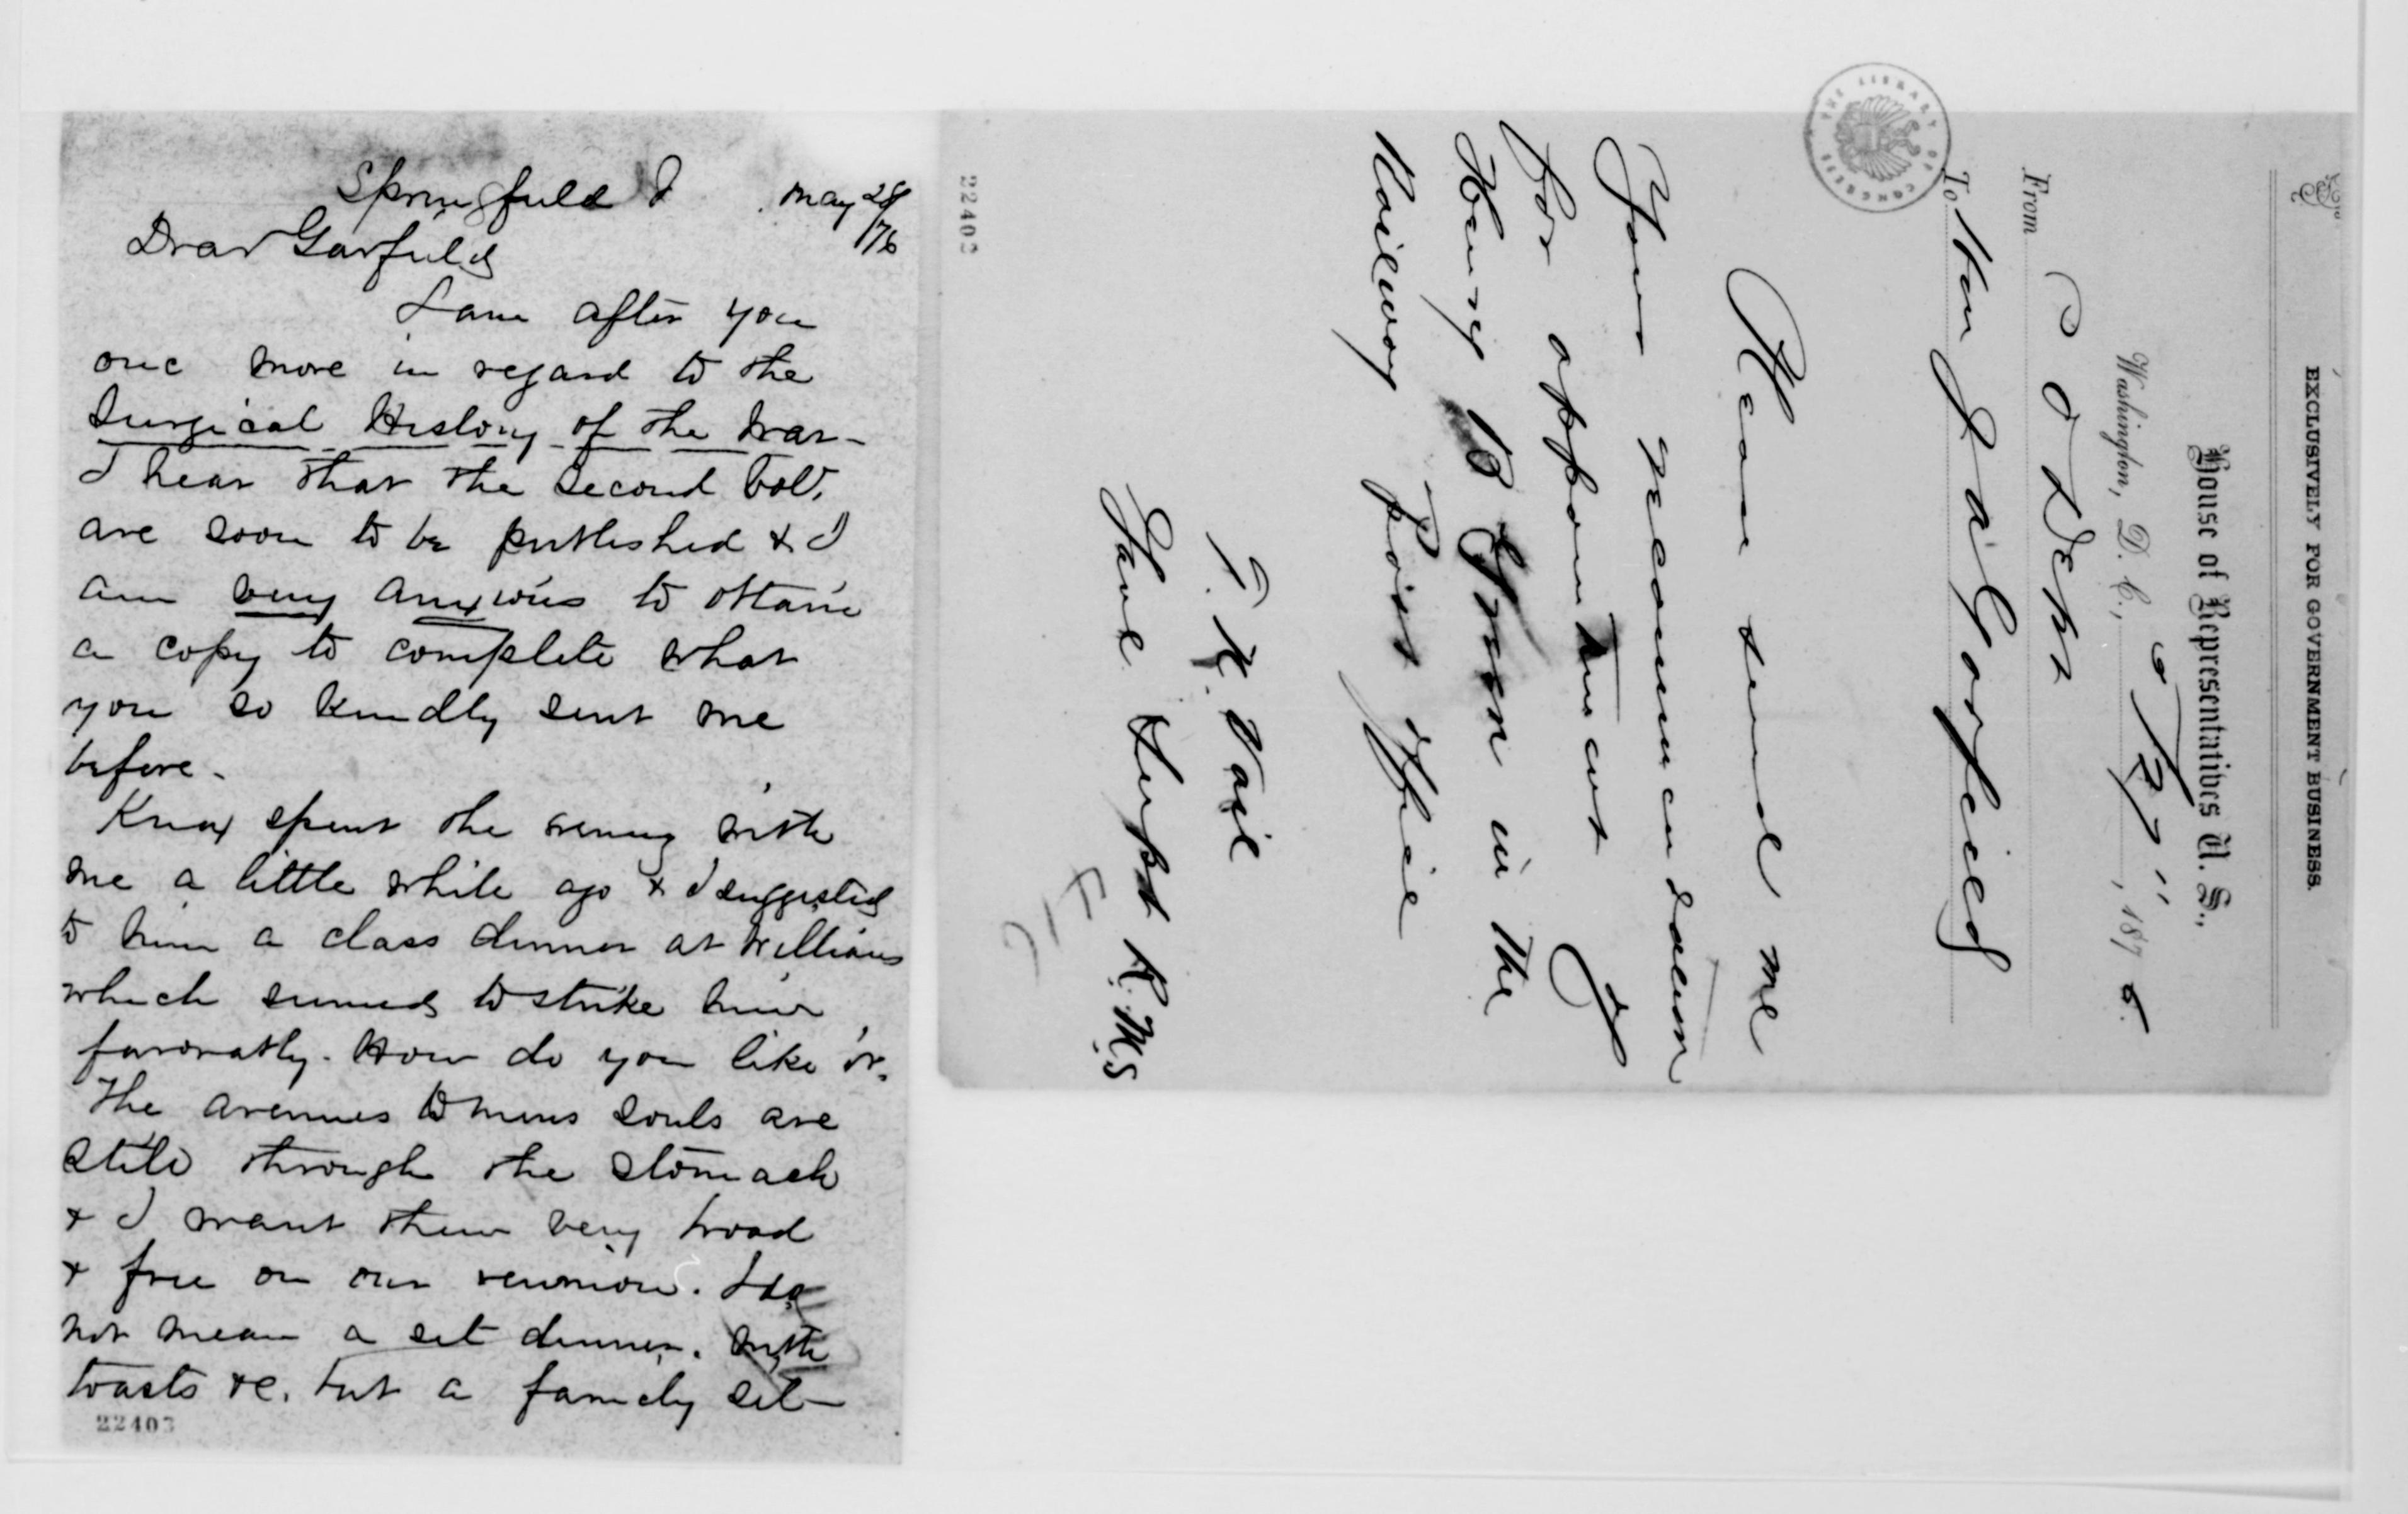 Springfield I May 28/76
Dear Garfield
I am after you
once more in regard to the
Surgical History of the War -
I hear that the Second Vols.
are soon to be published & I
am very anxious to obtain
a copy to complete what
you so kindly sent me
before -
Knox spent the evening with
me a little while ago & I suggested
to him a class dinner at Williams
which seemed to strike him
favorably. How do you like it.
The avenues to mens souls are
still through the stomach
& I want them very broad
& free on our reunion. I do
not mean a set dinner. with
toasts &c. but a family set-
22403
EXCLUSIVELY FOR GOVERNMENT BUSINESS.
House of Representatives U. S.,
Washington, D. C., , 1876.
From P O Dept
To Hon J A Garfield
Please send me
Your recommendation
for appointment of
Henry B Green in the
Railway Post Office
T. N. Vail
Genl Supt R.M.S
22403
THE LIBRARY OF CONGRESS